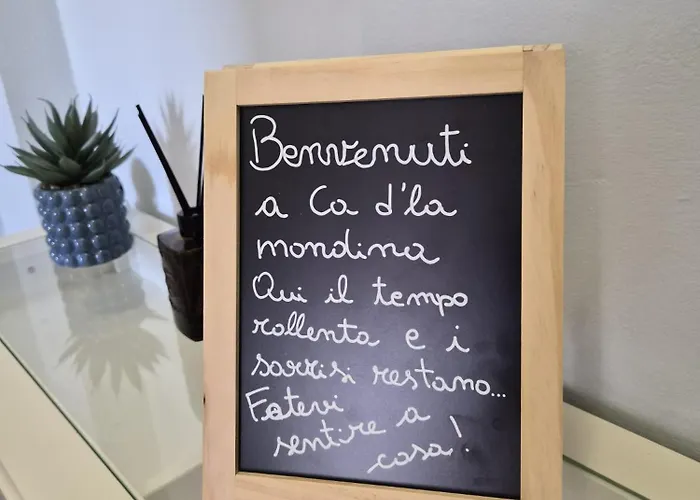 Benvenuti
a Ca d'la
mondina
Qui il tempo
rallenta e i
sorrisi restano...
Fatevi
sentire a
casa!